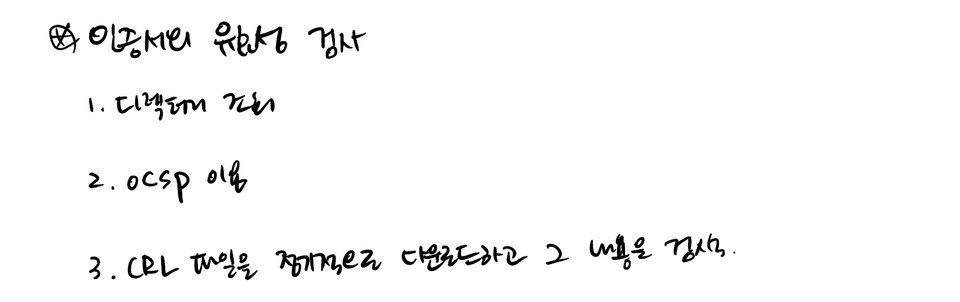 ⊛ 인증서의 유효성 검사
1. 디렉터리 조회
2. OCSP 이용
3. CRL 파일을 정기적으로 다운로드하고 그 내용을 검색.